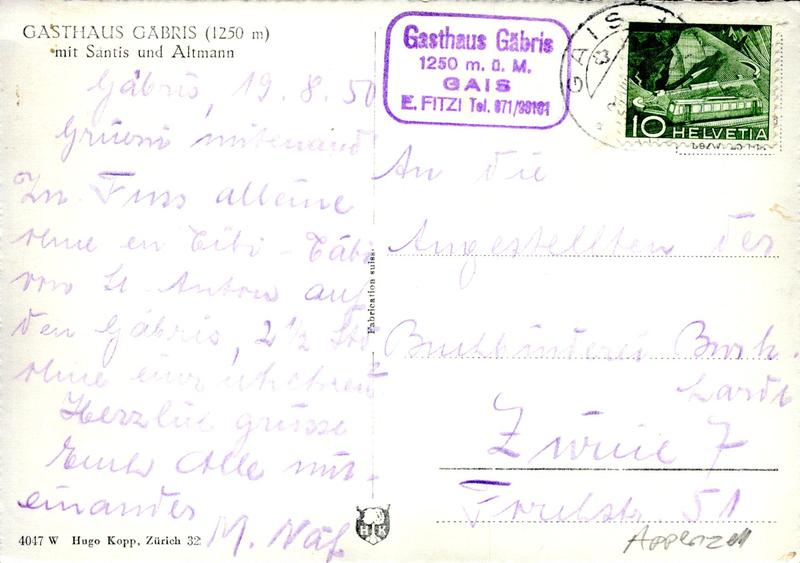 GASTHAUS GÄBRIS (1250 m)
mit Säntis und Altmann
Gasthaus Gäbris
1250 m. ü. M.
GAIS
E. FITZI Tel. 071/93161
GAIS
10 HELVETIA
Gäbris, 19. 8. 50
Grüeni mitenand
Zu Fuss alleine
ohne en Bibi-Bäbi
von St. Anton auf
den Gäbris, 2 1/2 Std
ohne einzukehren
Herzlich grüsse
Euch Alle mit-
einander
M. Näf
An die
Angestellten der
Buchbinderei Burk-
hardt
Zürich 7
51
Fabrication suisse.
HK
4047 W Hugo Kopp, Zürich 32
Appenzell